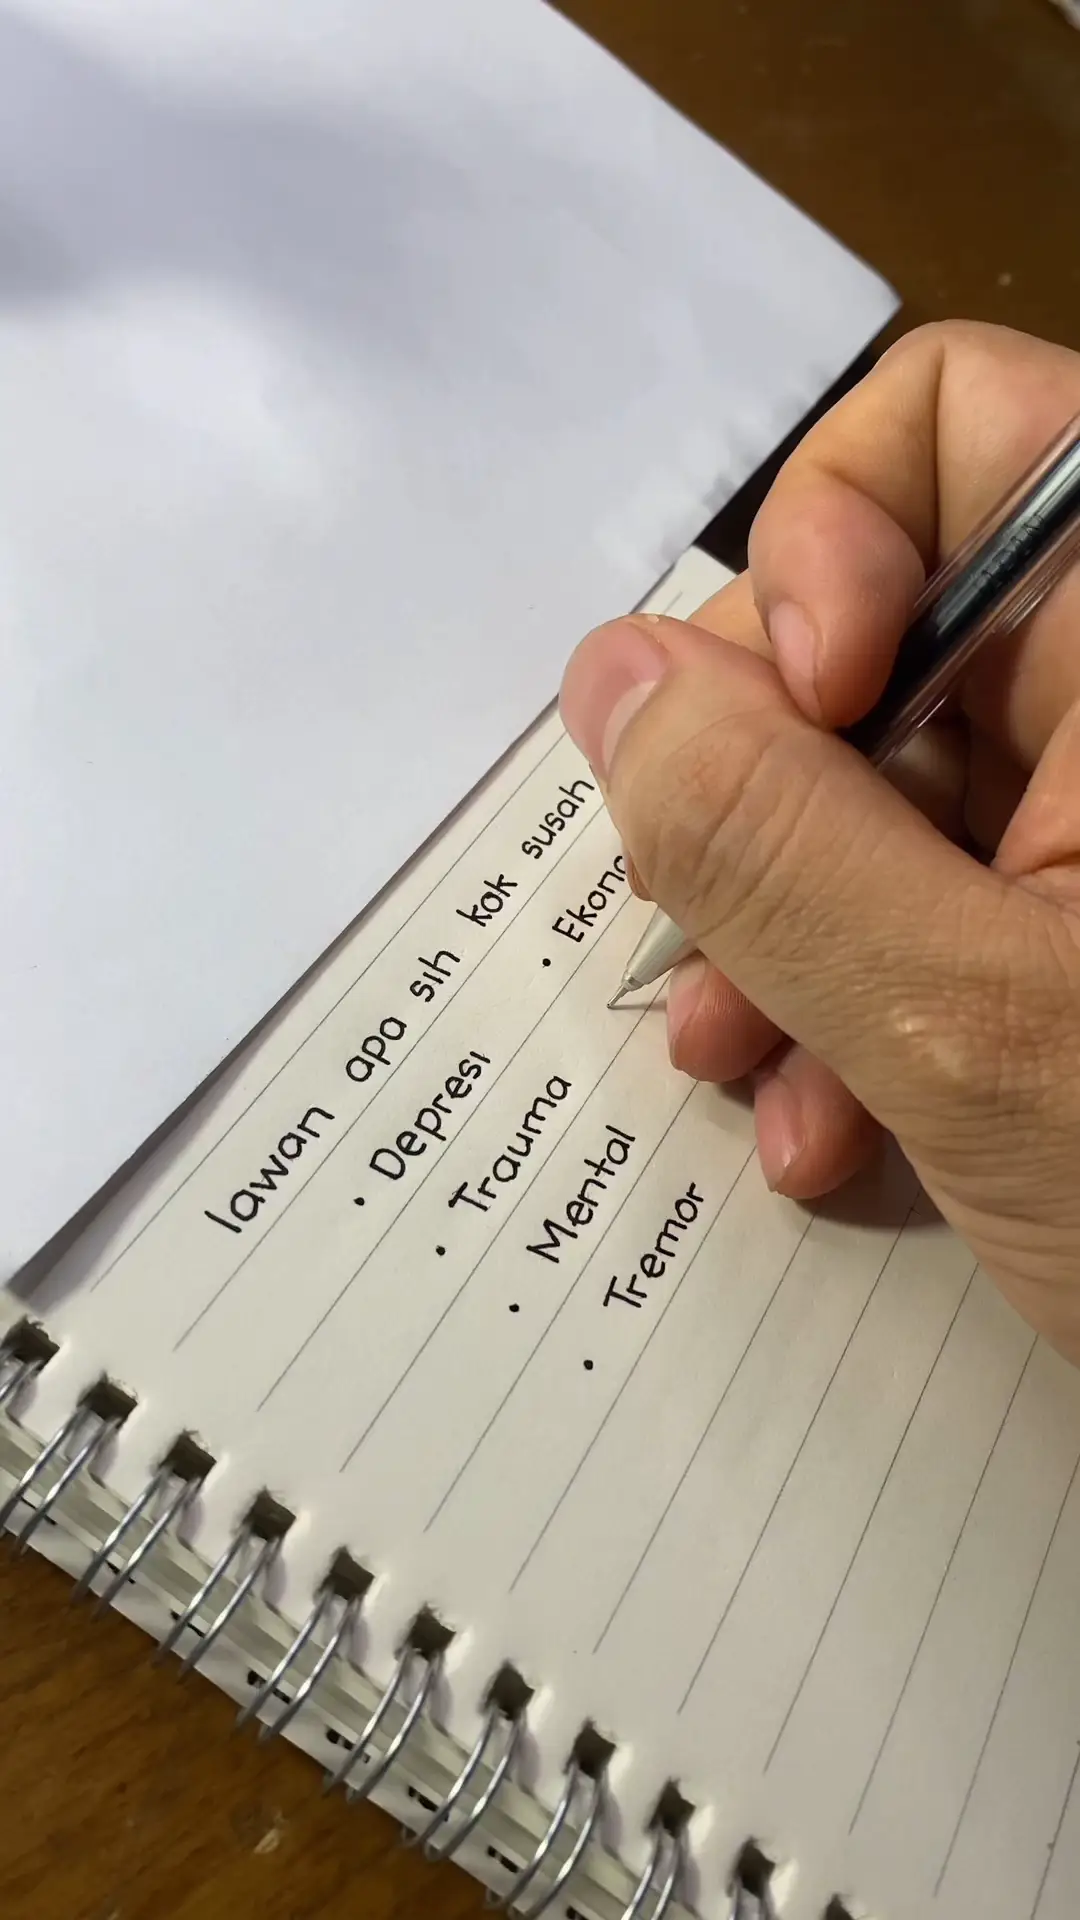 lawan apa sih kok susah
• Depresi
• Ekono
• Trauma
• Mental
• Tremor